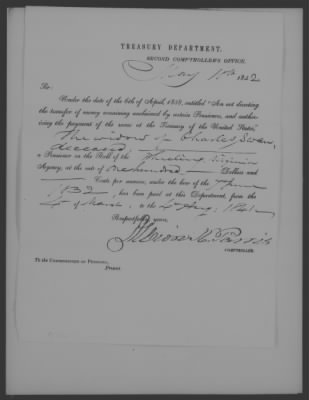 TREASURY DEPARTMENT,
SECOND COMPTROLLER'S OFFICE.
May 1852
Sir:
Under the date of the 6th of April, 1838, entitled "An act directing
the transfer of money remaining unclaimed by certain Pensioners, and autho-
rizing the payment of the same at the Treasury of the United States,"
The widow Charles
deceased,
a Pensioner on the Roll of the Wheeling, Virginia
Agency, at the rate of One hundred Dollars and
Cents per annum, under the law of the 7th June
1832 has been paid at this Department, from the
4th of March, to the 4th Aug: 1841
Respectfully yours,
COMPTROLLER.
To the COMMISSIONER OF PENSIONS,
Present.